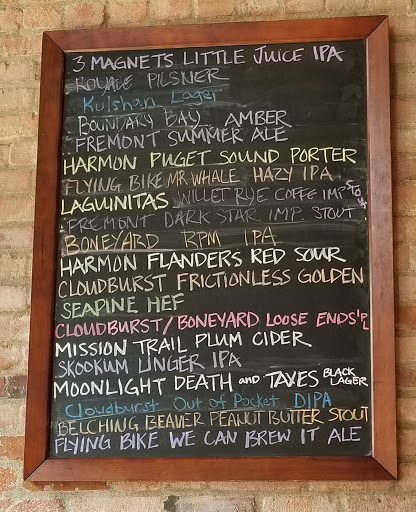 3 MAGNETS LITTLE JUICE IPA
ROYALE PILSNER
Kulshan Lager
BOUNDARY BAY AMBER
FREMONT SUMMER ALE
HARMON PUGET SOUND PORTER
FLYING BIKE MR WHALE HAZY IPA
LAGUINITAS WILLET RYE COFFE IMP STOUT
FREMONT DARK STAR IMP. STOUT
BONEYARD RPM IPA
HARMON FLANDERS RED SOUR
CLOUDBURST FRICTIONLESS GOLDEN
SEAPINE HEF
CLOUDBURST/BONEYARD LOOSE ENDS IPL
MISSION TRAIL PLUM CIDER
SKOOKUM LINGER IPA
MOONLIGHT DEATH and TAXES BLACK LAGER
Cloudburst Out of Pocket DIPA
BELCHING BEAVER PEANUT BUTTER STOUT
FLYING BIKE WE CAN BREW IT ALE